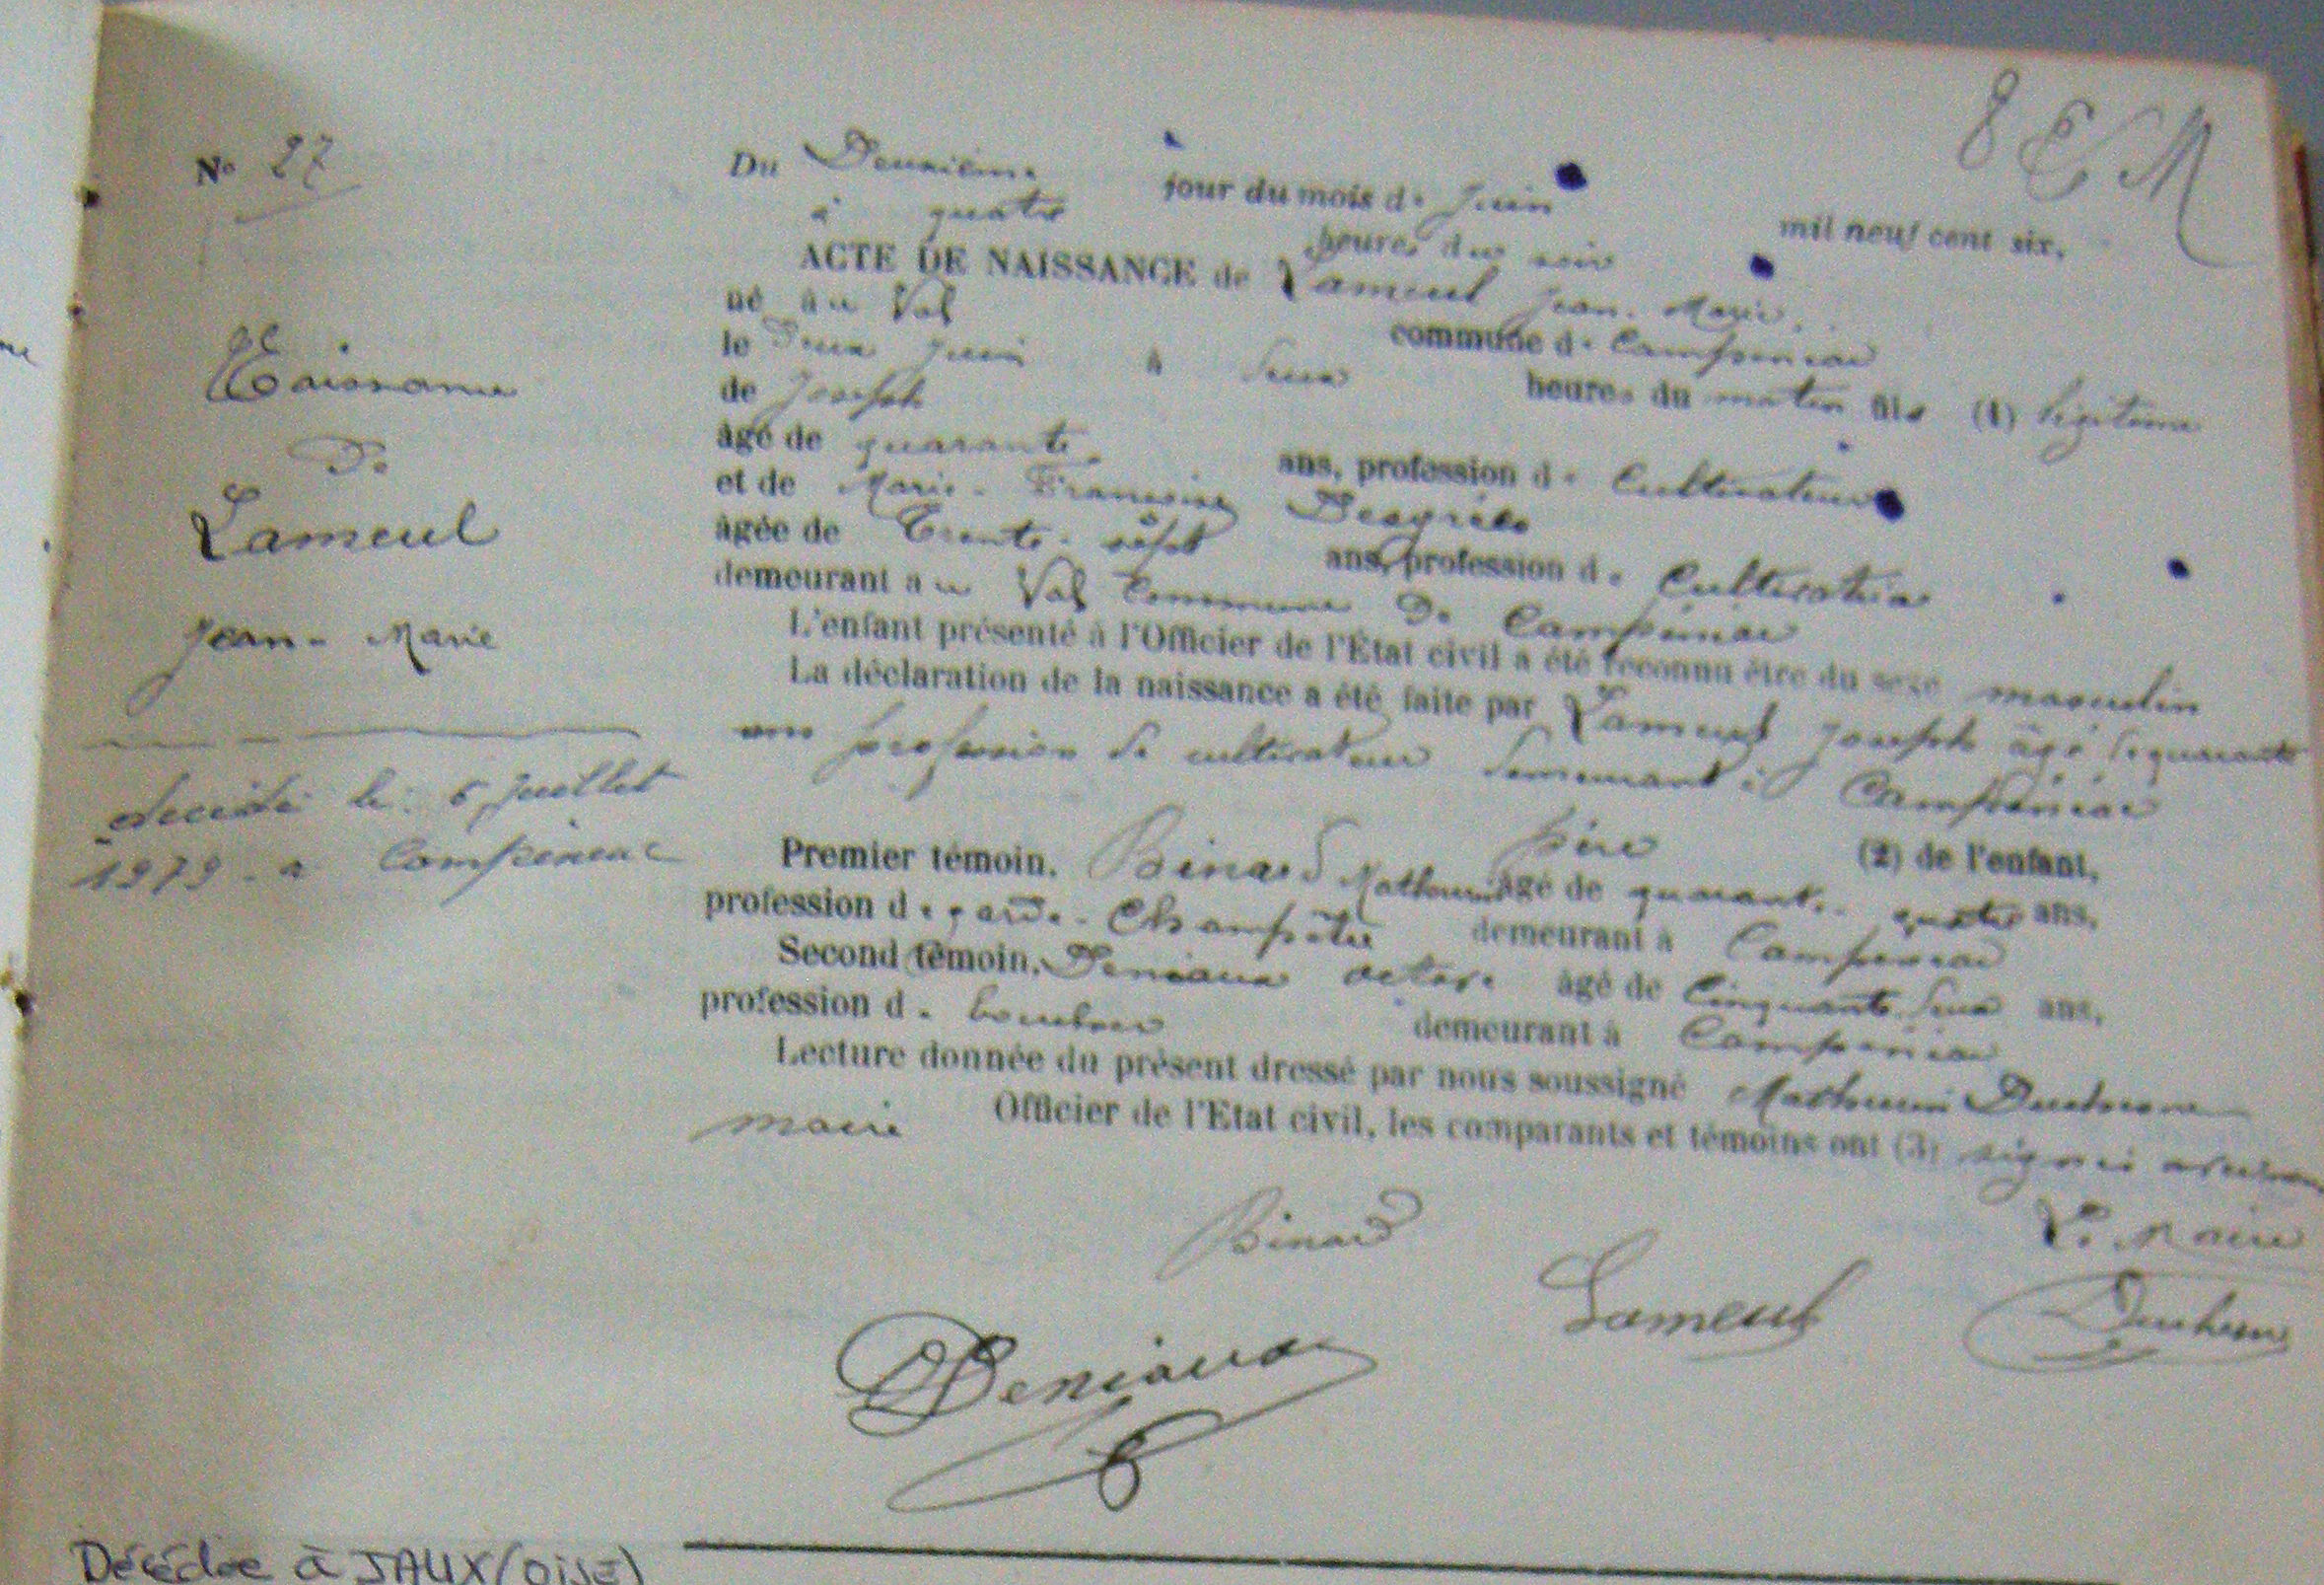 8 E M
No 27
Du Deuxième jour du mois de Juin mil neuf cent six,
à quatre heures du soir
ACTE DE NAISSANCE de Lameul Jean-Marie.
né au Val commune de Campénéac
le Deux Juin à Deux heures du matin fils (1) légitime
de Joseph
âgé de quarante ans, profession de Cultivateur
et de Marie-Françoise Desgrées
âgée de Trente-sept ans, profession de Cultivatrice
demeurant au Val Commune De Campénéac
L'enfant présenté à l'Officier de l'État civil a été reconnu être du sexe masculin
La déclaration de la naissance a été faite par Lameul Joseph âgé de quarante
ans profession de cultivateur demeurant à Campénéac
père (2) de l'enfant,
Premier témoin. Binard Mathurin âgé de quarante-quatre ans,
profession de garde-Champêtre demeurant à Campénéac
Second témoin. Deniaux âgé de Cinquante Deux ans,
profession de demeurant à Campénéac
Lecture donnée du présent dressé par nous soussigné Mathurin
maire Officier de l'Etat civil, les comparants et témoins ont (3) signé
Naissance
De
Lameul
Jean-Marie
décédé le 6 Juillet
1979 - a Campénéac
Le Maire
Binard
Lameul
Deniaux
Décédée à JAUX (OISE)